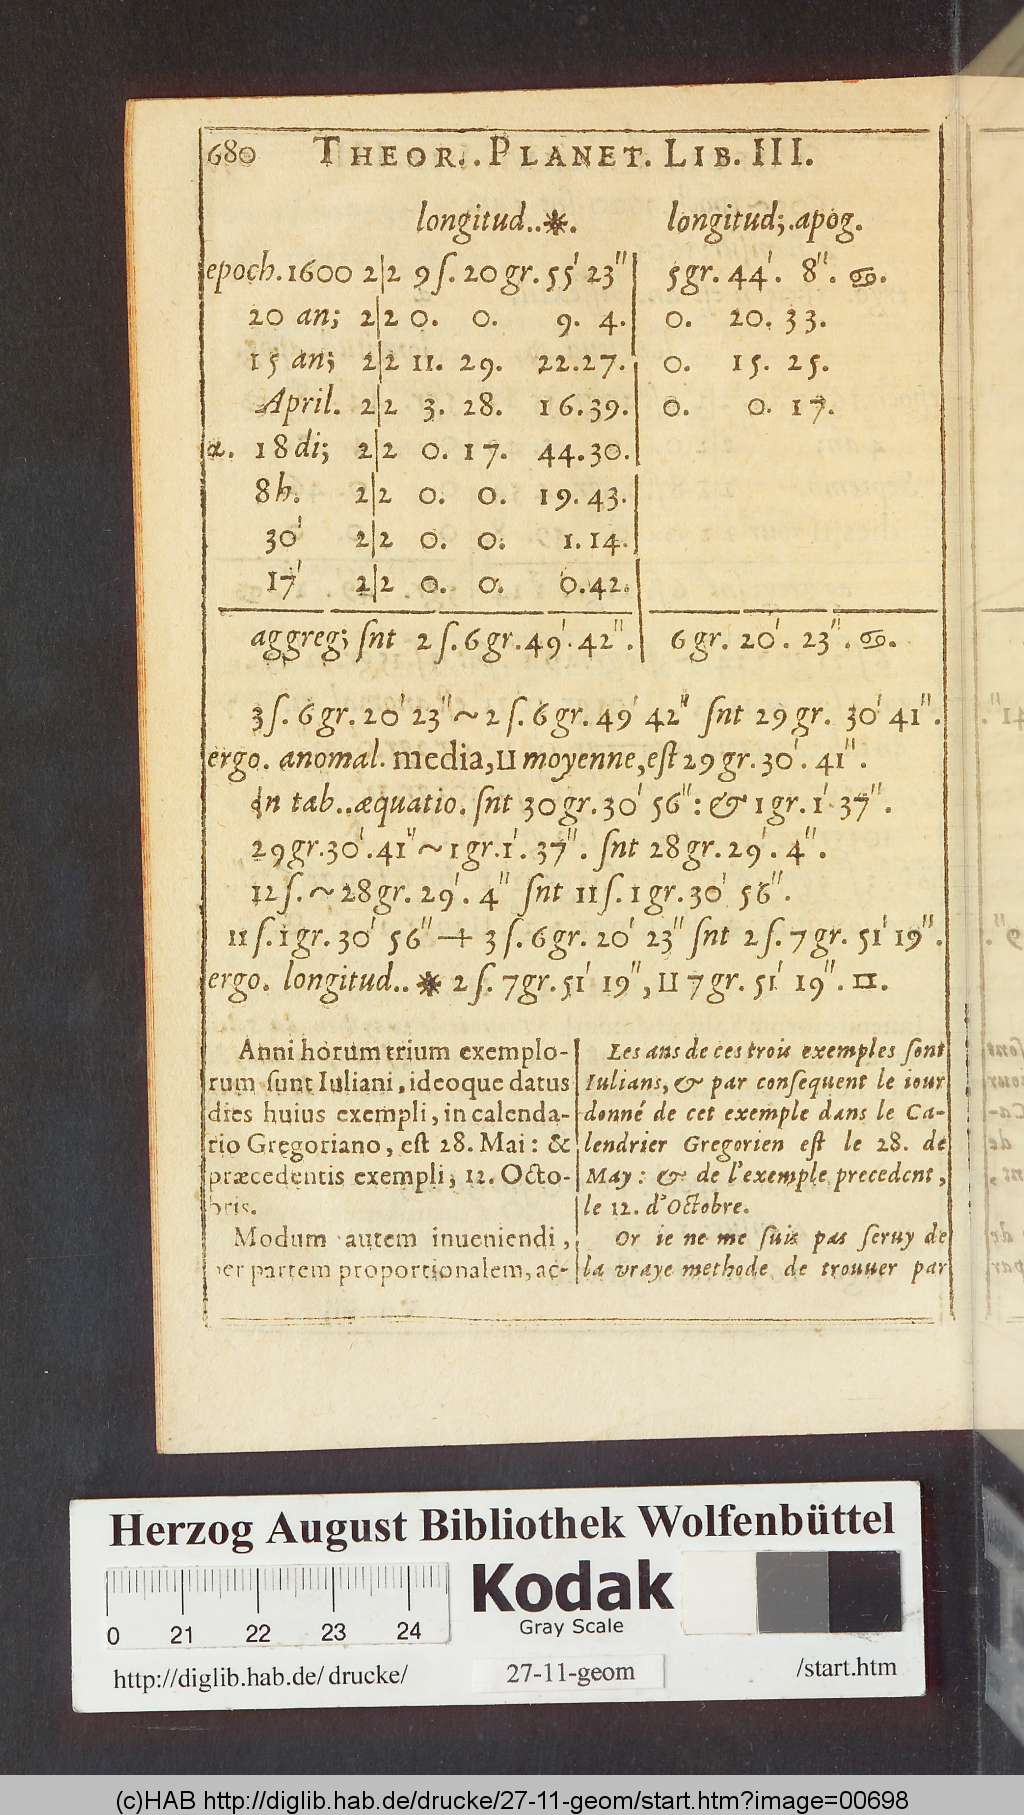 680 THEOR.. PLANET. LIB. III.
longitud..☀. longitud;.apog.
epoch. 1600 2|2 9 ſ. 20 gr. 55' 23" 5 gr. 44'. 8". ♋.
20 an; 2|2 0. 0. 9. 4. 0. 20. 33.
15 an; 2|2 11. 29. 22. 27. 0. 15. 25.
April. 2|2 3. 28. 16. 39. 0. 0. 17.
α. 18 di; 2|2 0. 17. 44. 30.
8 h. 2|2 0. 0. 19. 43.
30' 2|2 0. 0. 1. 14.
17' 2|2 0. 0. 0. 42.
aggreg; ſnt 2 ſ. 6 gr. 49'. 42". 6 gr. 20'. 23". ♋.
3 ſ. 6 gr. 20' 23" ~ 2 ſ. 6 gr. 49' 42" ſnt 29 gr. 30' 41".
ergo. anomal. media, II moyenne, eſt 29 gr. 30'. 41".
In tab.. æquatio. ſnt 30 gr. 30' 56": & 1 gr. 1' 37".
29 gr. 30'. 41" ~ 1 gr. 1'. 37". ſnt 28 gr. 29'. 4".
12 ſ. ~ 28 gr. 29'. 4" ſnt 11 ſ. 1 gr. 30' 56".
11 ſ. 1 gr. 30' 56" + 3 ſ. 6 gr. 20' 23" ſnt 2 ſ. 7 gr. 51' 19".
ergo. longitud.. ☀ 2 ſ. 7 gr. 51' 19", II 7 gr. 51' 19". ♊.
Anni horum trium exemplo-
rum ſunt Iuliani, ideoque datus
dies huius exempli, in calenda-
rio Gregoriano, eſt 28. Mai: &
præcedentis exempli, 12. Octo-
bris.
Modum autem inueniendi,
per partem proportionalem, ac-
Les ans de ces trois exemples ſont
Iulians, & par conſequent le iour
donné de cet exemple dans le Ca-
lendrier Gregorien eſt le 28. de
May: & de l'exemple precedent,
le 12. d'Octobre.
Or ie ne me ſuis pas ſeruy de
la vraye methode de trouuer par
Herzog August Bibliothek Wolfenbüttel
0 21 22 23 24
Kodak
Gray Scale
http://diglib.hab.de/ drucke/ 27-11-geom /start.htm
(c)HAB http://diglib.hab.de/drucke/27-11-geom/start.htm?image=00698